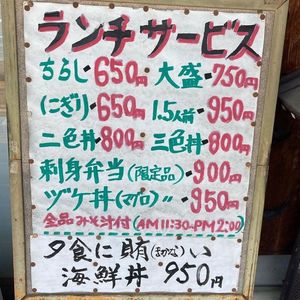 ランチサービス
ちらし・650円 大盛・750円
にぎり・650円 1.5人前・950円
二色丼・800円 三色丼・800円
刺身弁当(限定品)・900円
ヅケ丼(マグロ)〃・950円
全品みそ汁付(AM11:30~PM2:00)
夕食に賄(まかない)い
海鮮丼 950円